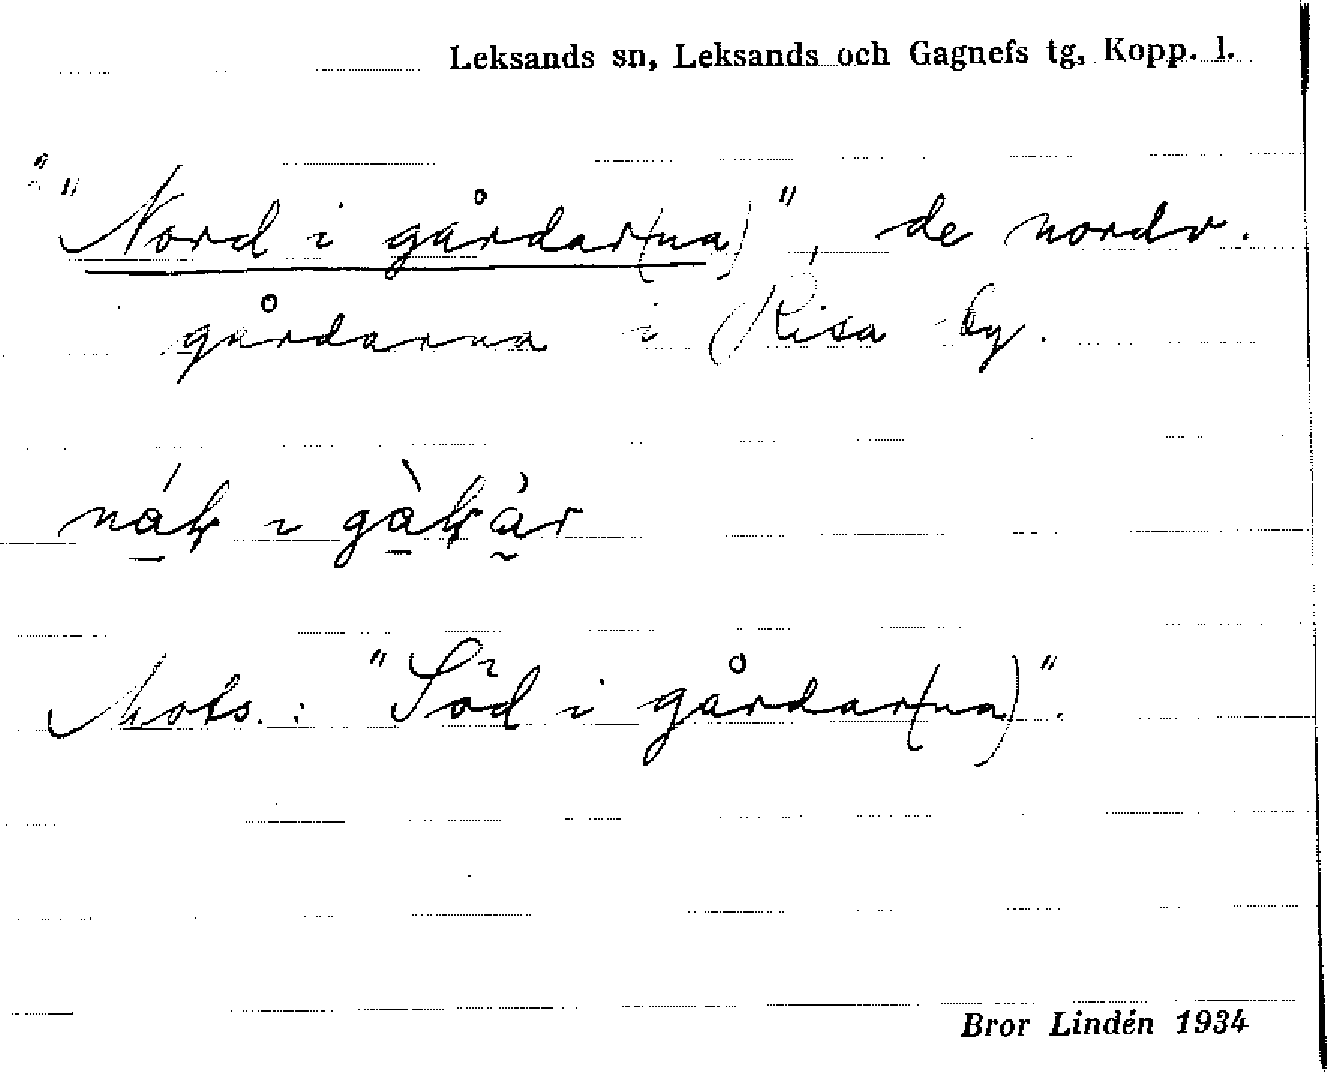 Leksands sn, Leksands och Gagnefs tg, Kopp. l.
"Nord i gårdar(na)", de nordv.
gårdarna i Risa by.
i
Mots.: "Söd i gårdar(na)".
Bror Lindén 1934